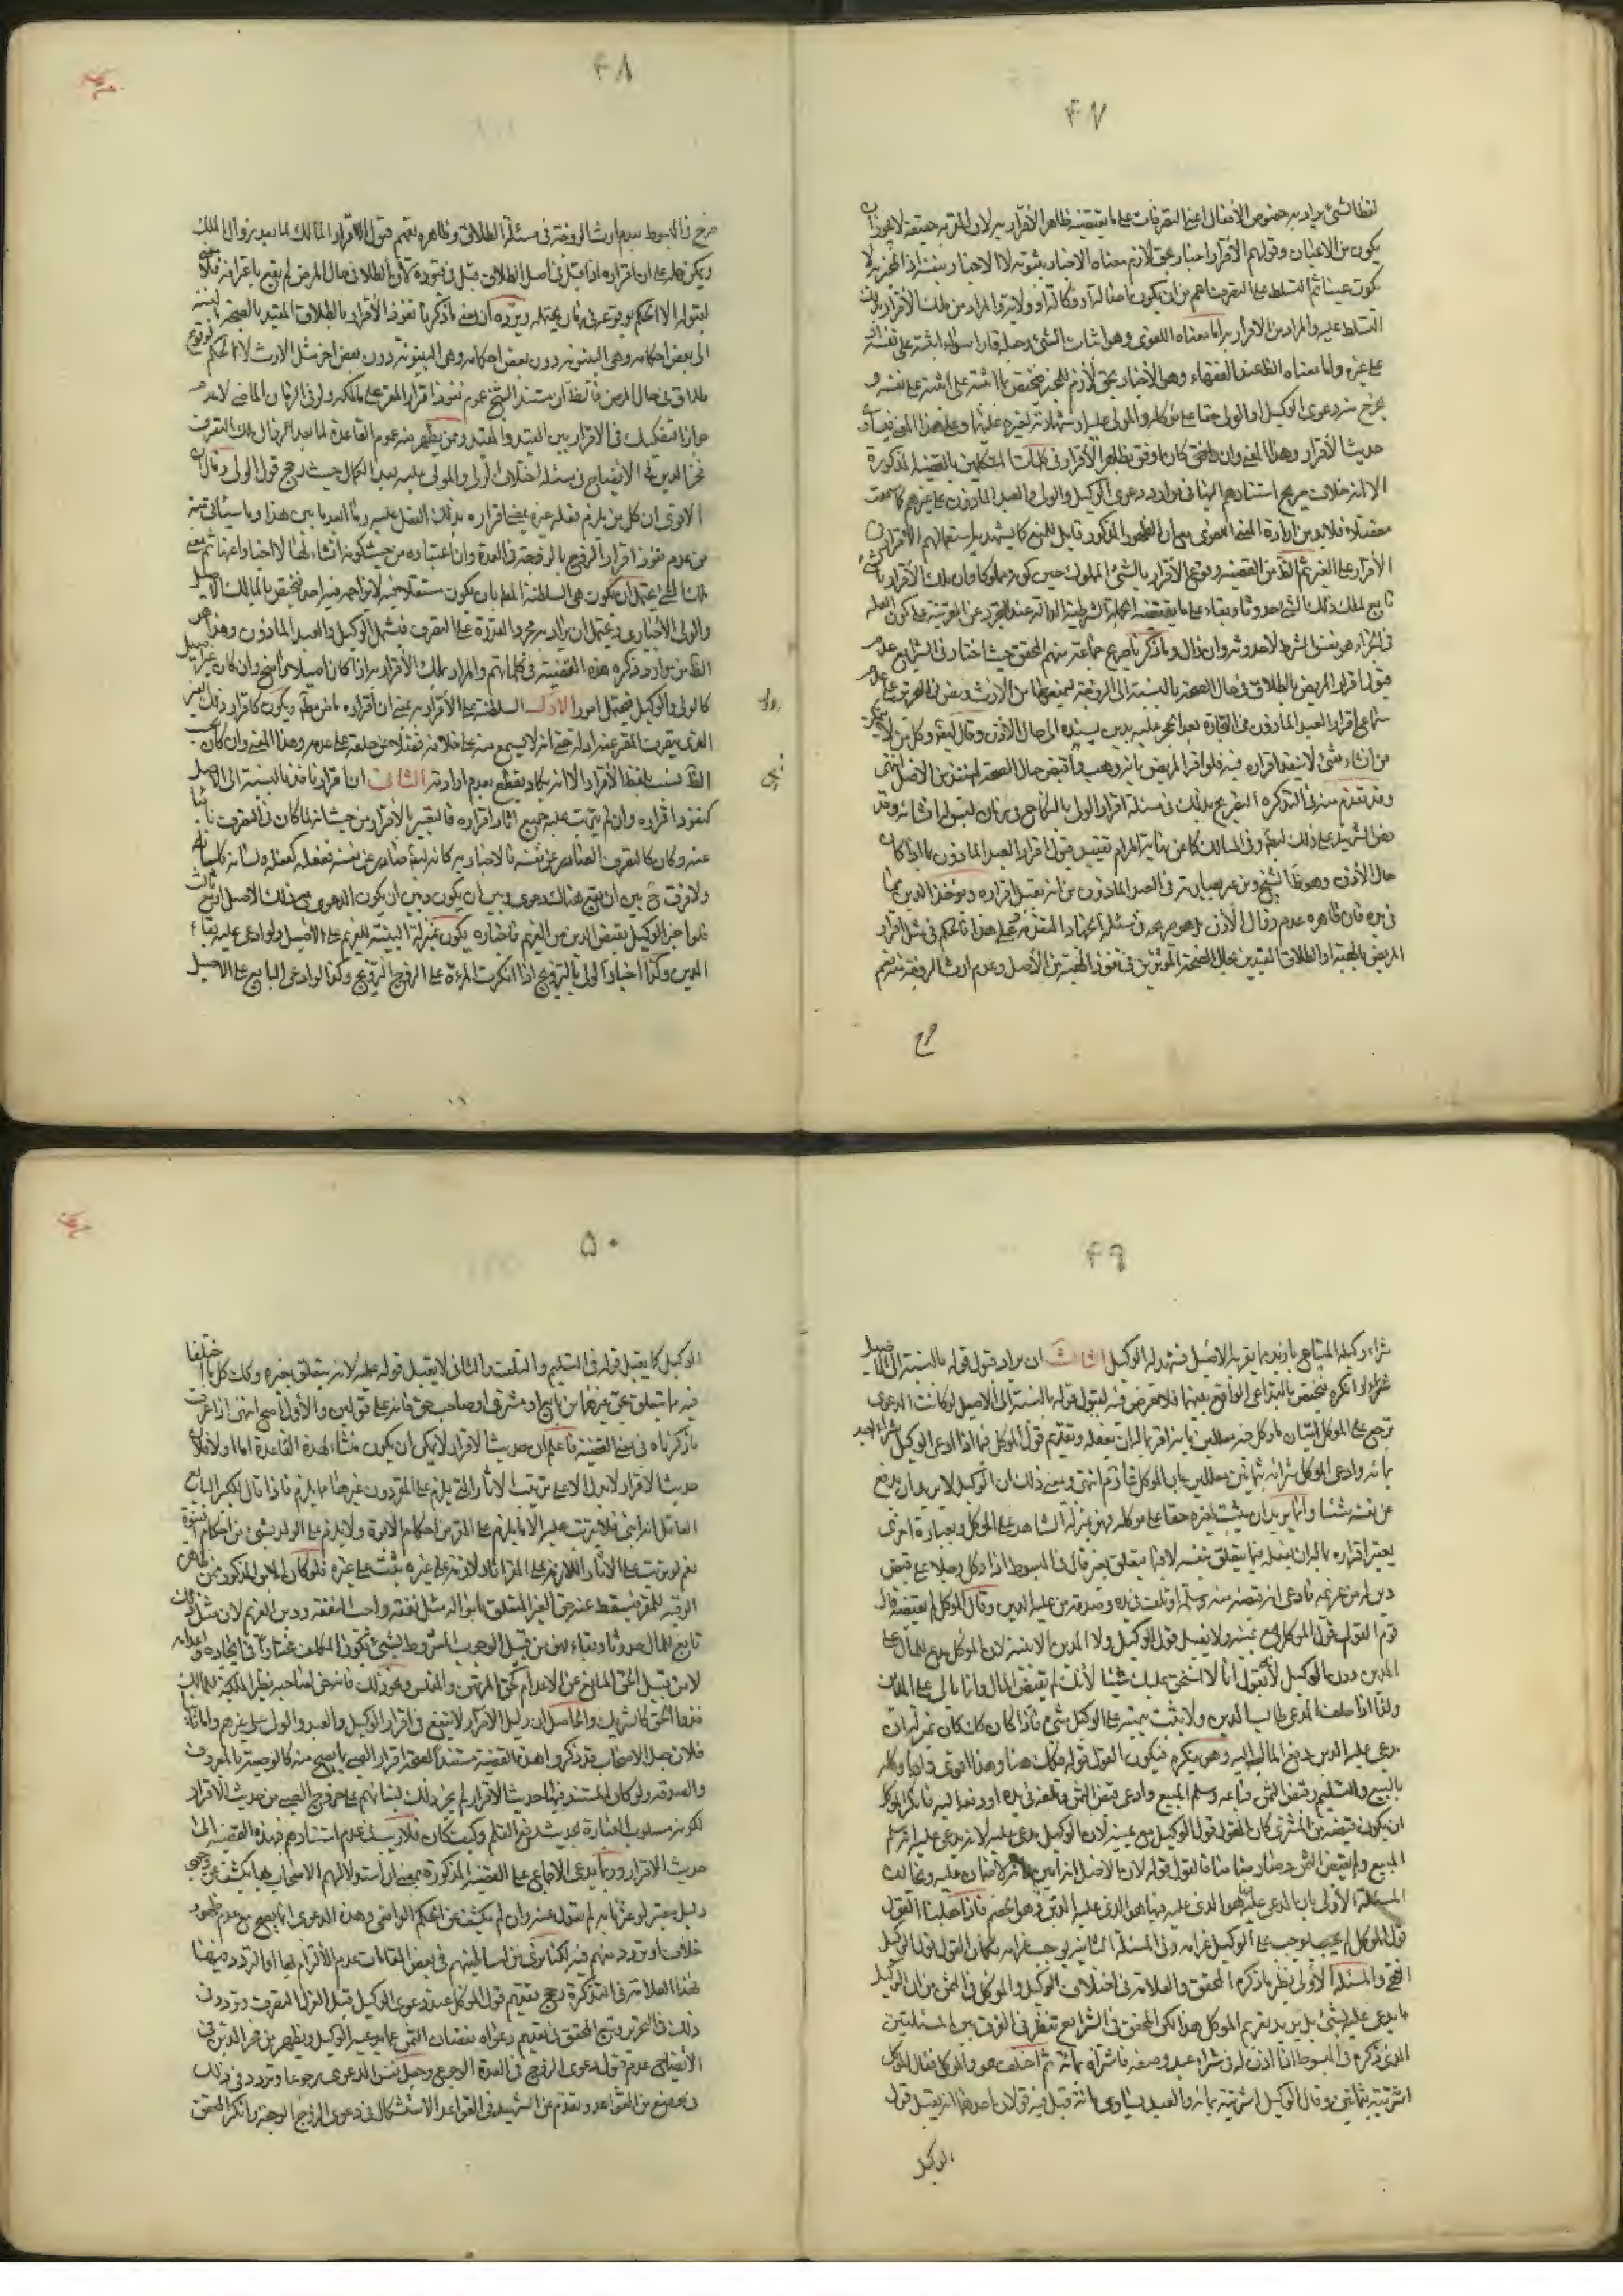 ۴۷
لفظ الشئ يراد به خصوص الأفعال اعنى التصرفات على ما يقتضيه ظاهر الأقرار به لان المقر به حقيقة لا يجوز ان
يكون من الاعيان وقولهم الأقرار اخبار بحق لازم معناه الاخبار بثبوته لا الاخبار بنفسه اذ المخبر به لا
يكون عينا ثم التسلط على التصرف اعم من ان يكون اصالة او وكالة او ولاية والمراد من ملك الأقرار به
التسلط عليه والمراد من الاقرار به اما معناه اللغوى وهو اثبات الشئ وجعله قارا سواء اثبته على نفسه او
على غيره واما معناه الظ عند الفقهاء وهو الأخبار بحق لازم للمخبر فيختص بما اثبته على نفسه و
يخرج منه دعوى الوكيل او الولى حقا على موكله والمولى عليه او شهادته لغيره عليهما وعلى هذا المعنى
حديث الأقرار وهذا المعنى وان كان اوفق بظاهر الأقرار فى كلمات المتكلمين بالقضيه المذكورة
الا انه خلاف صريح استنادهم اليها فى موارد دعوى الوكيل والولى والعبد الماذون على غيرهم كما سمعت
مفصلا فلا بد من ارادة المعنى اللغوى مع ان الظهور المذكور قابل للمنع كما يشهد به استعمالهم الأقرار فى
الأقرار على الغير ثم الظ من القضيه وقوع الأقرار بالشئ المملوك حين كونه مملوكا وان ملك الأقرار بالشئ
تابع لملك ذلك الشئ حدوثا وبقاء على ما يقتضيه الجملة الشرطية الدالة عند التجرد عن القرينة على كون العلة
فى الجزاء هو نفس الشرط لا حدوثه وان زال وما ذكرنا صرح جماعة منهم المحقق حيث اختار فى الشرايع عدم
قبول اقرار المريض بالطلاق فى حال الصحة بالنسبة الى الزوجة ليمنعها من الارث وبعض فى التحرير على عدم
سماع اقرار العبد الماذون فى التجارة بعد الحجر عليه بدين يسنده الى حال الأذن وقال ايضا وكل من لا يتمكن
من انشاء شئ لا ينفذ اقراره فيه فلو اقر المريض بانه وهب واقبض حال الصحة لم ينفذ من الاصل انتهى
وقد تقدم منه فى التذكرة التصريح بذلك فى مسئلة اقرار الولى بالنكاح فى زمان ليس له انشائه وقد
نص الشهيد على ذلك ايضا وفى المسالك كما عن غاية المرام تقييد قبول اقرار العبد الماذون بما اذا كان
حال الأذن وهو ظ الشيخ ومن عبر بعبارته فى العبد الماذون من انه يقبل اقراره ويؤخذ الدين مما
فى يده فان ظاهره عدم زوال الأذن بل هو صريحه فى مسئلة الجهاد المتقدمة على هذا فالحكم فى مثل اقرار
المريض بالهبة او الطلاق المقيدين بحال الصحة المؤثرين فى نفوذ الهبة من الأصل وعدم ارث الزوجة منه نعم
صرح
۴۸
صرح فى المبسوط بعدم ارث الزوجة فى مسئلة الطلاق وظاهره تعميم قبول الاقرار المالك لما بعد زوال الملك
ويمكن حمله على ان اقراره اذا قبل فى اصل الطلاق قبل فى قيوده لأن الطلاق حال المرض لم يقع باعترافه فلا معنى
لقبوله الا الحكم بوقوعه فى زمان يحتمله ويرده ان معنى ما ذكرنا نفوذ الأقرار بالطلاق المقيد بالصحة بالنسبة
الى بعض احكامه وهى البينونة دون بعض اخر مثل الارث لا الحكم بوقوع
طلاق فى حال المرض فالظ ان مستند الشيخ عموم نفوذ اقرار المقر على ما ملكه ولو فى الزمان الماضى لا عدم
جواز التفكيك فى الاقرار بين القيد والمقيد وممن يظهر منه عموم القاعدة لما بعد زوال ملك التصرف
فخر الدين فى الايضاح فى مسئلة اختلاف الولى والمولى عليه بعد الكمال حيث رجح قول الولى وقال ان
الاقوى ان كل من يلزم فعله غيره يمضى اقراره بذلك الفعل عليه وما ابعد ما بين هذا وما سيأتى منه
من عدم نفوذ اقرار الزوج بالرجعة فى العدة وان اعتباره من حيث كونه انشاء لها لا اخبارا عنها ثم معنى
ملك الشئ يحتمل ان يكون هى السلطنة المطلقة بان يكون مستقلا فيه لا يزاحمه فيه احد فيختص بالمالك الاصيل
والولى الأجبارى ويحتمل ان يراد به مجرد القدرة على التصرف فيشمل الوكيل والعبد الماذون وهذا هو
الظ من موارد ذكره هذه القضية فى كلماتهم والمراد بملك الأقرار به اذا كان اصيلا واضح وان كان غير اصيل
كالولى والوكيل فيحتمل امورا الاول السلطنة على الأقرار به بمعنى ان اقراره ماض مط ويكون كاقرار ذلك الغير
الذى يقر المقر عنه او له حتى انه لا يسمع منه بينة على خلافه فضلا عن حلفه على عدمه وهذا المعنى وان كان بحسب
الظ نسب بلفظ الأقرار الا انه يكاد يقطع بعدم ارادته الثانى ان اقراره نافذ بالنسبة الى الاصيل
كنفوذ اقراره وان لم يترتب عليه جميع اثار اقراره فالتعبير بالاقرار من حيث انه لما كان فى التصرف نائبا
عنه وكان كالتصرف الصادر عن نفسه فالاخبار به كانه ايضا صادر عن نفسه ففعله كفعله ولسانه كلسانه
ولا فرق ح بين ان يقع هناك دعوى وبين ان يكون وبين ان يكون الدعوى مع ذلك الاصيل او مع ثالث
فلو اخبر الوكيل بقبض الدين من الغريم فاخباره يكون بمنزلة البينة للغريم على الاصيل ولو ادعى عليه بقاء
الدين وكذا اخبار الولى بالتزويج اذا انكرت المرءة على الزوج التزويج وكذا لو ادعى البايع على الاصيل
۴۹
شراء وكيله المتاع بازيد مما يقر به الاصيل فشهد له الوكيل الثالث ان يراد قبول قوله بالنسبة الى الاصيل
شراء لو انكره فيختص بالتداعى الواقع بينهما فلا تعرض فيه لقبول قوله بالنسبة الى الاصيل لو كانت الدعوى
ترجع على الموكل
بمائة وادعى الموكل شرائه بثمانين
عن نفسه شيئا وانما يريد ان يثبت لغيره حقا على موكله فهو بمنزلة الشاهد على الموكل وبعبارة اخرى
يعتبر اقراره بما له ان يفعله فيما يتعلق بنفسه لا فيما يتعلق بغيره قال فى المبسوط اذا وكل رجلا على قبض
دين له من غريمه فادعى انه قبضه منه وسلمه او تلف فى يده وصدقه من عليه الدين وقال الموكل لم يقبضه قال
قوم القول قول الموكل مع يمينه ولا يقبل قول الوكيل ولا المدين الا ببينة لان الموكل يدعى المال على
المدين دون الوكيل لأنه يقول انا لا استحق عليك شيئا لأنك لم تقبض المال وانا مالى على المدين
ولذا اذا حلف المدعى طالب المدين ولا يثبت بيمينه على الوكيل شئ فاذا كان كذلك كان بمنزلة ان
يدعى من عليه الدين دفع المال اليه وهو ينكره فيكون القول قوله فكك هنا وهذا اقوى واذا وكله
بالبيع والتسليم وقبض الثمن فباعه وسلم المبيع وادعى قبض الثمن وتلفه فى يده او دفعه اليه فانكر الموكل
ان يكون قبضه من المشترى كان القول قول الوكيل مع يمينه لان الوكيل مدعى عليه لانه يدعى عليه انه سلم
المبيع ولم يقبض الثمن وصار ضامنا فالقول قوله لان الاصل انه امين وانه لا ضمان عليه ويخالف
المسئلة الأولى لان المدعى عليه فيها هو الذى عليه الدين وهو الخصم فاذا جعلنا القول
قول الموكل لم نوجب على الوكيل غرامة وفى المسئلة الثانية يوجب غرامة فكان القول قول الوكيل
انتهى وللمسئلة الأولى نظير ما ذكره المحقق والعلامة فى اختلاف الوكيل والموكل فى الثمن من ان الوكيل
ما يدعى عليه بشئ بل يريد تغريم الموكل هذا لكن المحقق فى الشرايع تنظر فى الفرق بين المسئلتين
الذى ذكره فى المبسوط اذا اذن له فى شراء عبد وصفه فاشتراه بمائة ثم اختلف هو والموكل فقال الموكل
اشتريته بثمانين وقال الوكيل اشتريته بمائة والعبد يساوى مائة قيل فيه قولان احدهما انه يقبل قول
الوكيل
۵۰
الوكيل كما يقبل قوله فى التسليم والتلف والثانى لا يقبل قوله عليه لانه يتعلق بغيره وكك كل ما اختلفا
فيه مما يتعلق بحق غيرهما من بايع او مشترى او صاحب حق فانه على قولين والأول اصح انتهى اذا عرفت
ما ذكرناه فى معنى القضية فاعلم ان حديث الاقرار لا يمكن ان يكون منشاء لهذه القاعدة اما اولا فلان
حديث الاقرار لا يدل الا على ترتب الآثار التى يلزم على المقر دون غيرها مما يلزم فاذا قال البكر البالغ
العاقل انه ابنى فلا يترتب عليه الا ما يلزم على المقر من احكام الابوة ولا يلزم على الولد شئ من احكام البنوة
نعم لو ترتب على الآثار اللازمة على المقر اثار لازمة على غيره يثبت على غيره فلو كان الابن المذكور ممن
الرقبة للمقر فيسقط عنه حق الغير المتعلق باموالـه مثل نفقة واجب النفقة ودين الغريم لان مثل ذلك
تابع للمال حدوثا وبقاء فهو من قبيل الوجوب المشروط بشئ يكون المكلف مختارا فى ايجاده واعدامه
لا من قبيل الحق المانع عن الاعدام كحق المرتهن والمفلس ونحو ذلك فانه حق لصاحبه نظير الملكية للمالك
فذو الحق كالشريك والحاصل ان دليل الاقرار لا ينفع فى اقرار الوكيل والعبد والولى على غيرهم واما ثانيا
فلان جل الاصحاب قد ذكروا هذه القضية مستندا لصحة اقرار الصبى بما يصح منه كالوصية بالمعروف
والصدقه ولو كان المستند فيها حديث الاقرار لم يجز ذلك لبنائهم على خروج الصبى من حديث الاقرار
لكونه مسلوب العبارة بحديث رفع القلم وكيف كان فلا ريب فى عدم استنادهم فى هذه القضية الى
حديث الاقرار وربما يدعى الاجماع على القضية المذكورة بمعنى ان استدلال الاصحاب بها يكشف عن وجود
دليل معتبر لو عثرنا به لم نعدل عنه وان لم يكشف عن الحكم الواقعى وهذه الدعوى انما يصح مع عدم ظهور
خلاف او تردد منهم فيه لكنا نرى من اساطينهم فى بعض المقامات عدم الألتزام بها او التردد فيها
فهذا العلامة فى التذكرة رجح تقديم قول الموكل عند دعوى الوكيل قبل العزل التصرف وتردد فى
ذلك فى التحرير وتبع المحقق فى تقديم دعواه بنقصان الثمن عما يدعيه الوكيل ويظهر من فخر الدين فى
الأيضاح عدم قبول دعوى الزوج فى العدة الرجوع وجعل نفس الدعوى رجوعا وتردد فى ذلك
فى موضع من القواعد وتقدم عن الشهيد فى القواعد الاستشكال فى دعوى الزوج الرجعة وانكر المحقق